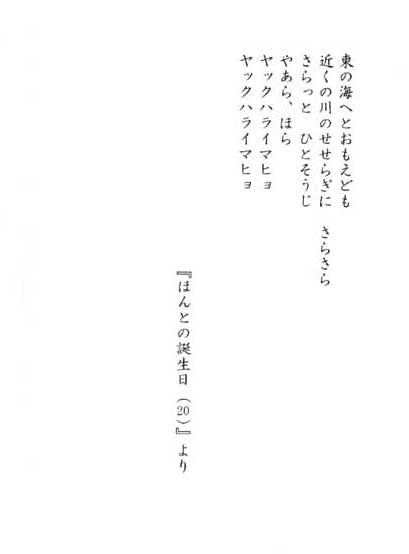 東の海へとおもえども
近くの川のせせらぎに　さらさら
さらっと　ひとそうじ
やあら、ほら
ヤックハライマヒョ
ヤックハライマヒョ
『ほんとの誕生日（20）』より